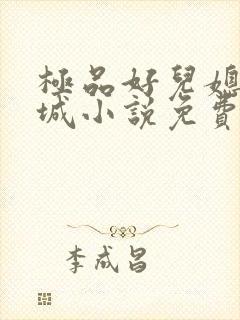 極品好兒媳
城小說免費
李成昌